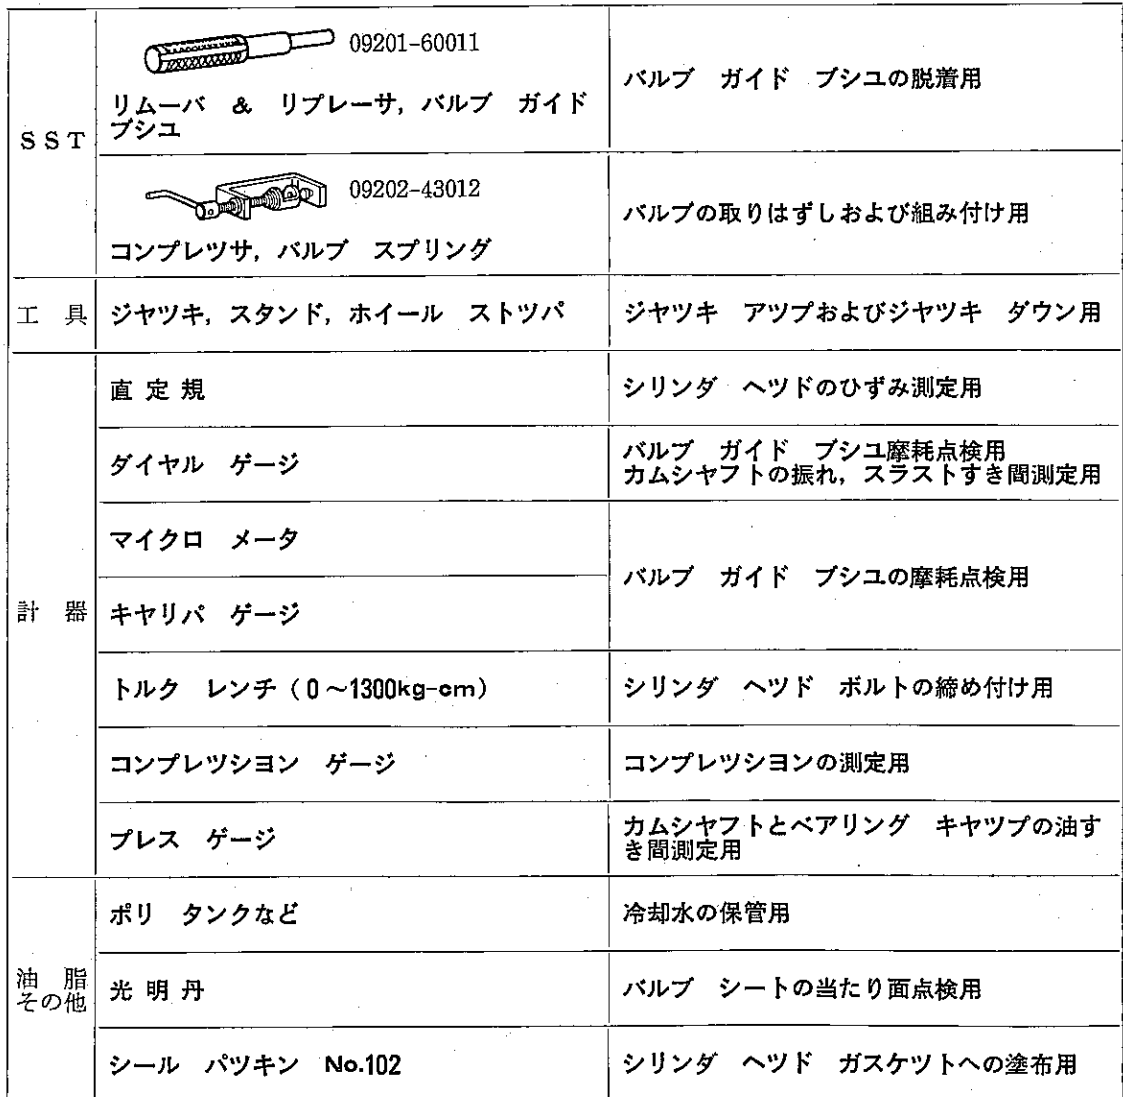 SST
09201-60011
リムーバ & リプレーサ, バルブ ガイド
ブシユ
バルブ ガイド ブシユの脱着用
09202-43012
コンプレツサ, バルブ スプリング
バルブの取りはずしおよび組み付け用
工 具
ジヤツキ, スタンド, ホイール ストツパ
ジヤツキ アツプおよびジヤツキ ダウン用
計 器
直 定 規
シリンダ ヘツドのひずみ測定用
ダイヤル ゲージ
バルブ ガイド ブシユ摩耗点検用
カムシヤフトの振れ, スラストすき間測定用
マイクロ メータ
キヤリパ ゲージ
バルブ ガイド ブシユの摩耗点検用
トルク レンチ (0~1300kg-cm)
シリンダ ヘツド ボルトの締め付け用
コンプレツシヨン ゲージ
コンプレツシヨンの測定用
プレス ゲージ
カムシヤフトとベアリング キヤツプの油す
き間測定用
油 脂
その他
ポリ タンクなど
冷却水の保管用
光 明 丹
バルブ シートの当たり面点検用
シール パツキン No.102
シリンダ ヘツド ガスケツトへの塗布用